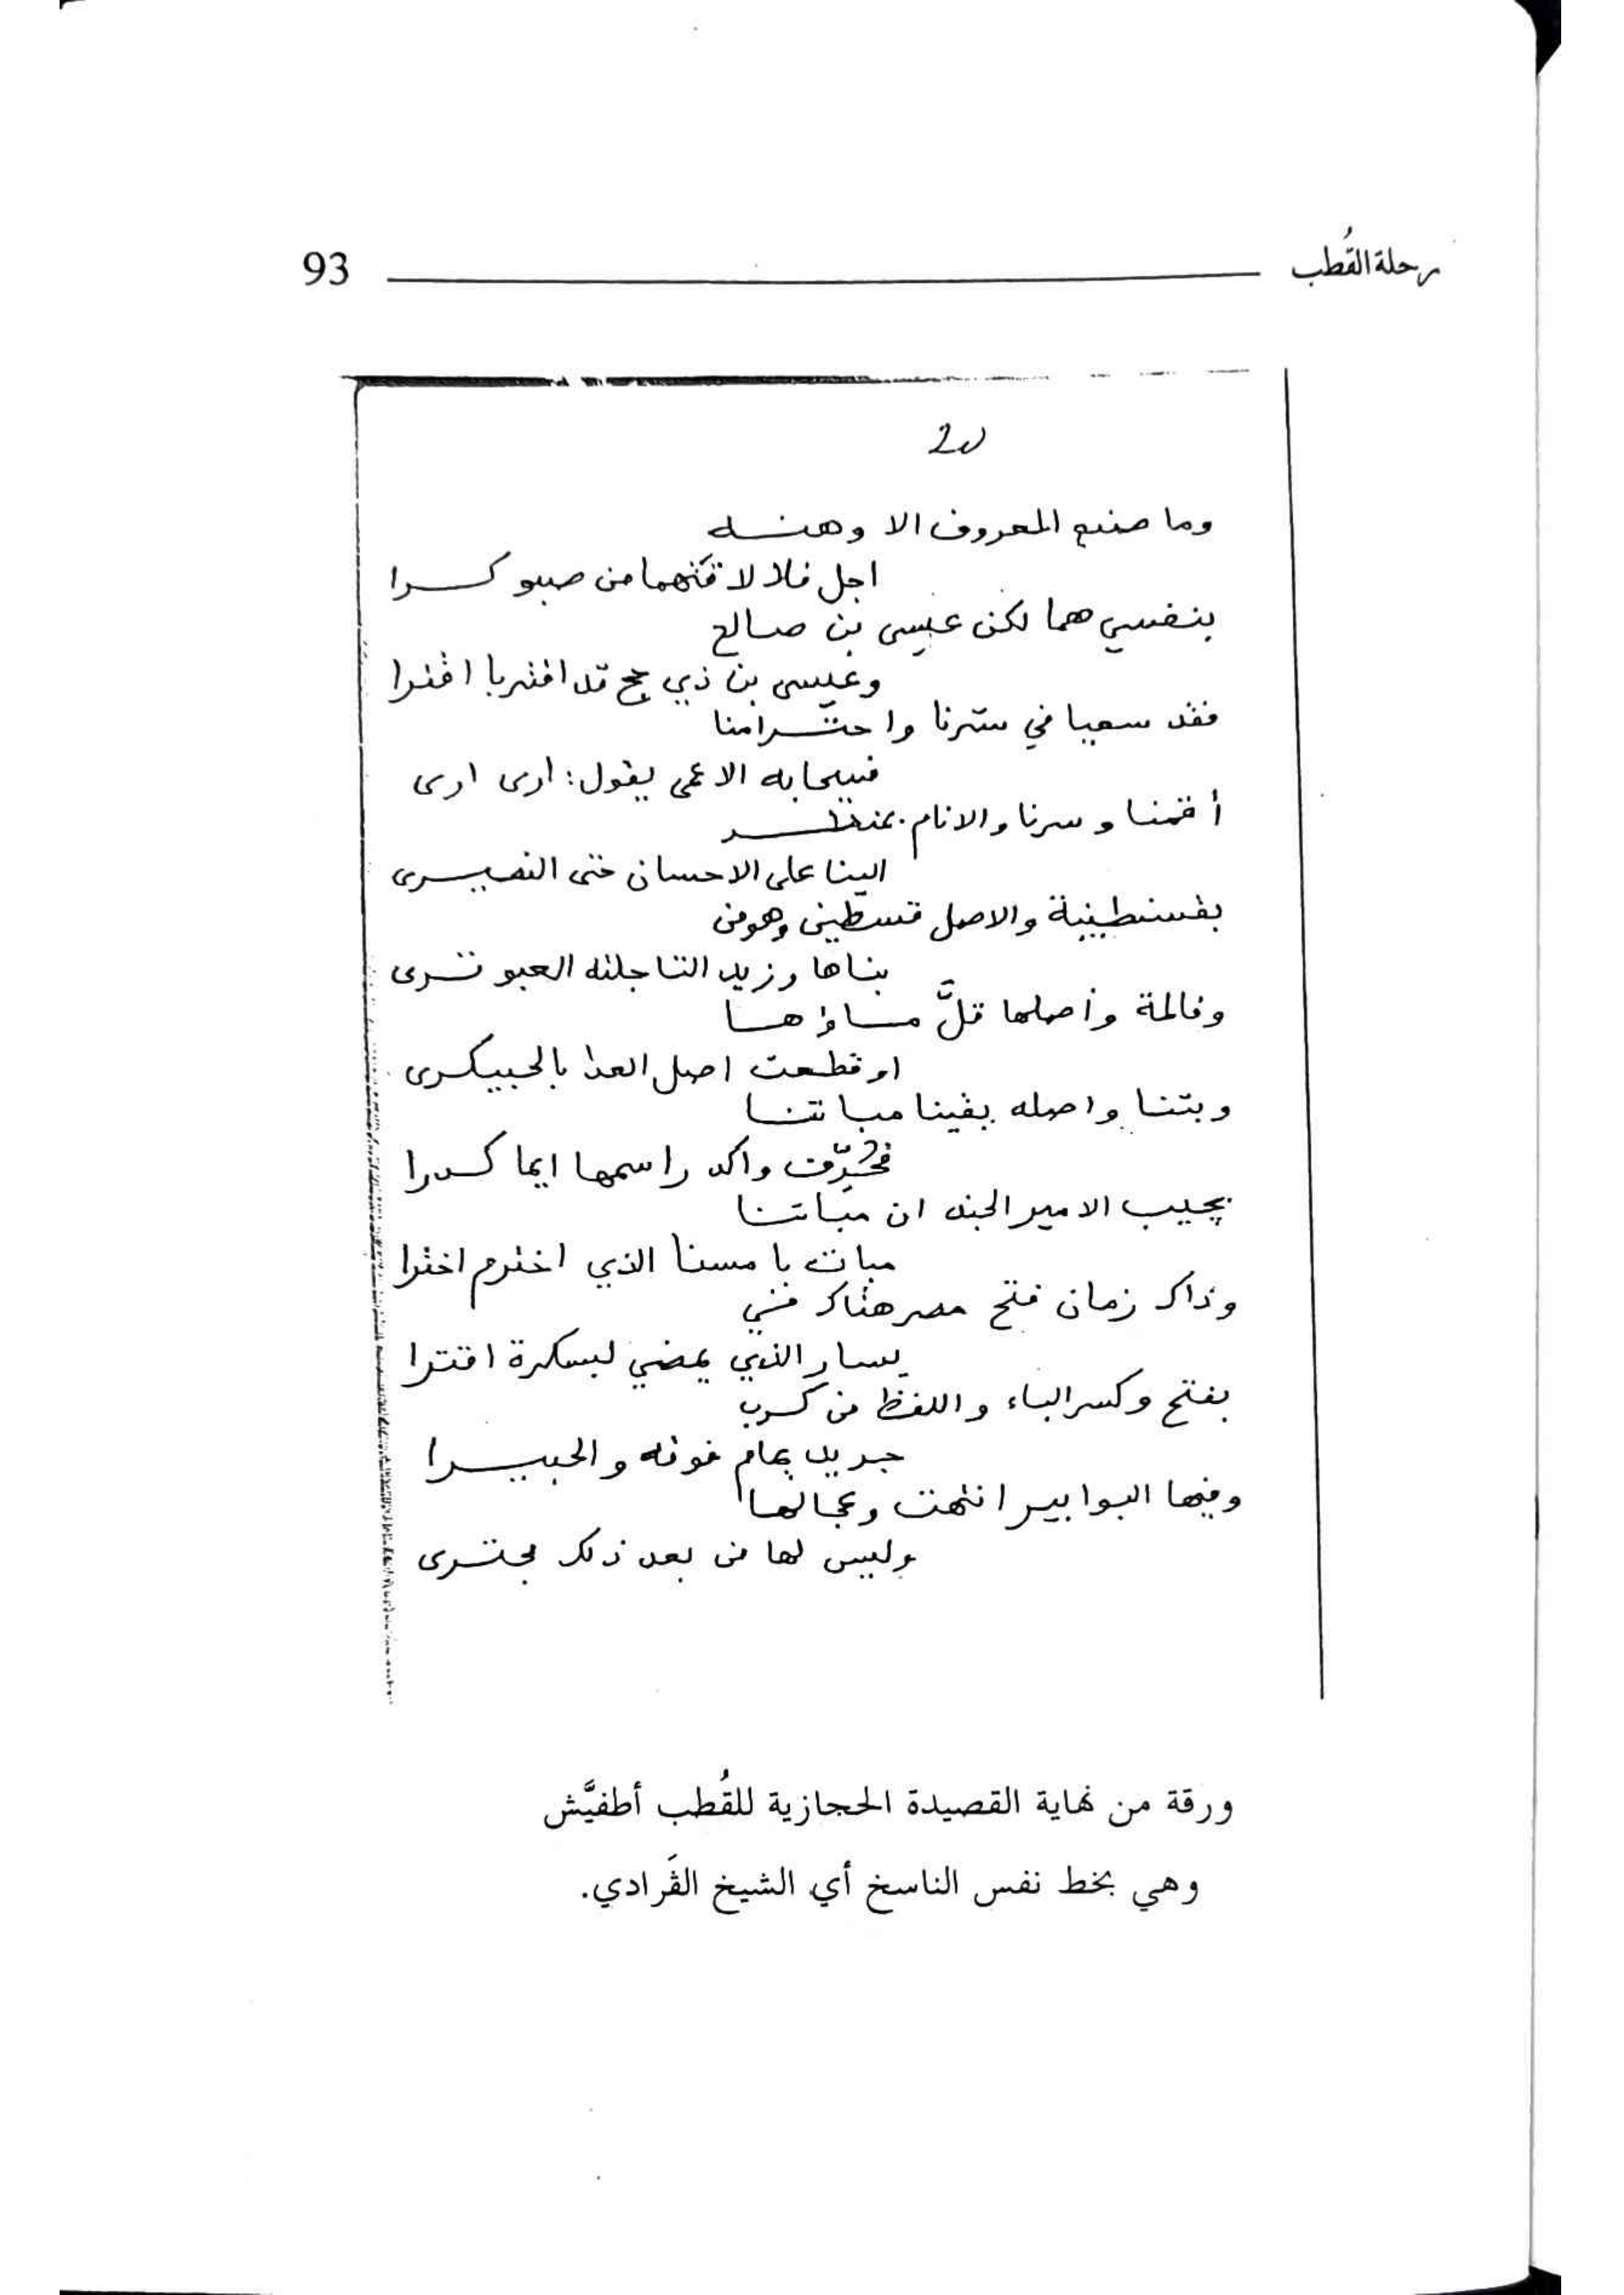 رحلة القُطب 93
وما صنع المعروف الا وهنه
اجل فلا لا من صبو كرا
بنفسي هما لكن عيسى بن صالح
وعيسى بن ذي قد افتريا افترا
فقد سعيا في سترنا واحترامنا
الاعمى يقول: ارى ارى
أقمنا وسرنا والانام بمنظر
الينا على الاحسان حتى النصيرى
بقسنطينية والاصل قسطين وهو من
بناها وزيد التا جلته ترى
وقالمة وأصلها قلَّ ماؤها
او قطعت اصل العذا
وبتنا واصله بقينا مباتنا
فحُرِّفت واكد راسمها ايما كدرا
بجيب الامير الجند ان مباتنا
مبات با مسنا الذي اخترم اخترا
وذاك زمان فتح مصر هناك في
يسار الذي يمضي لبسكرة اقترا
بفتح وكسر الباء واللفظ من كرب
جريد بمام
وفيها البوابير انتهت وعجالها
وليس لها من بعد ذلك مجترى
ورقة من نهاية القصيدة الحجازية للقُطب أطفيَّش
وهي بخط نفس الناسخ أي الشيخ الڤرادي.